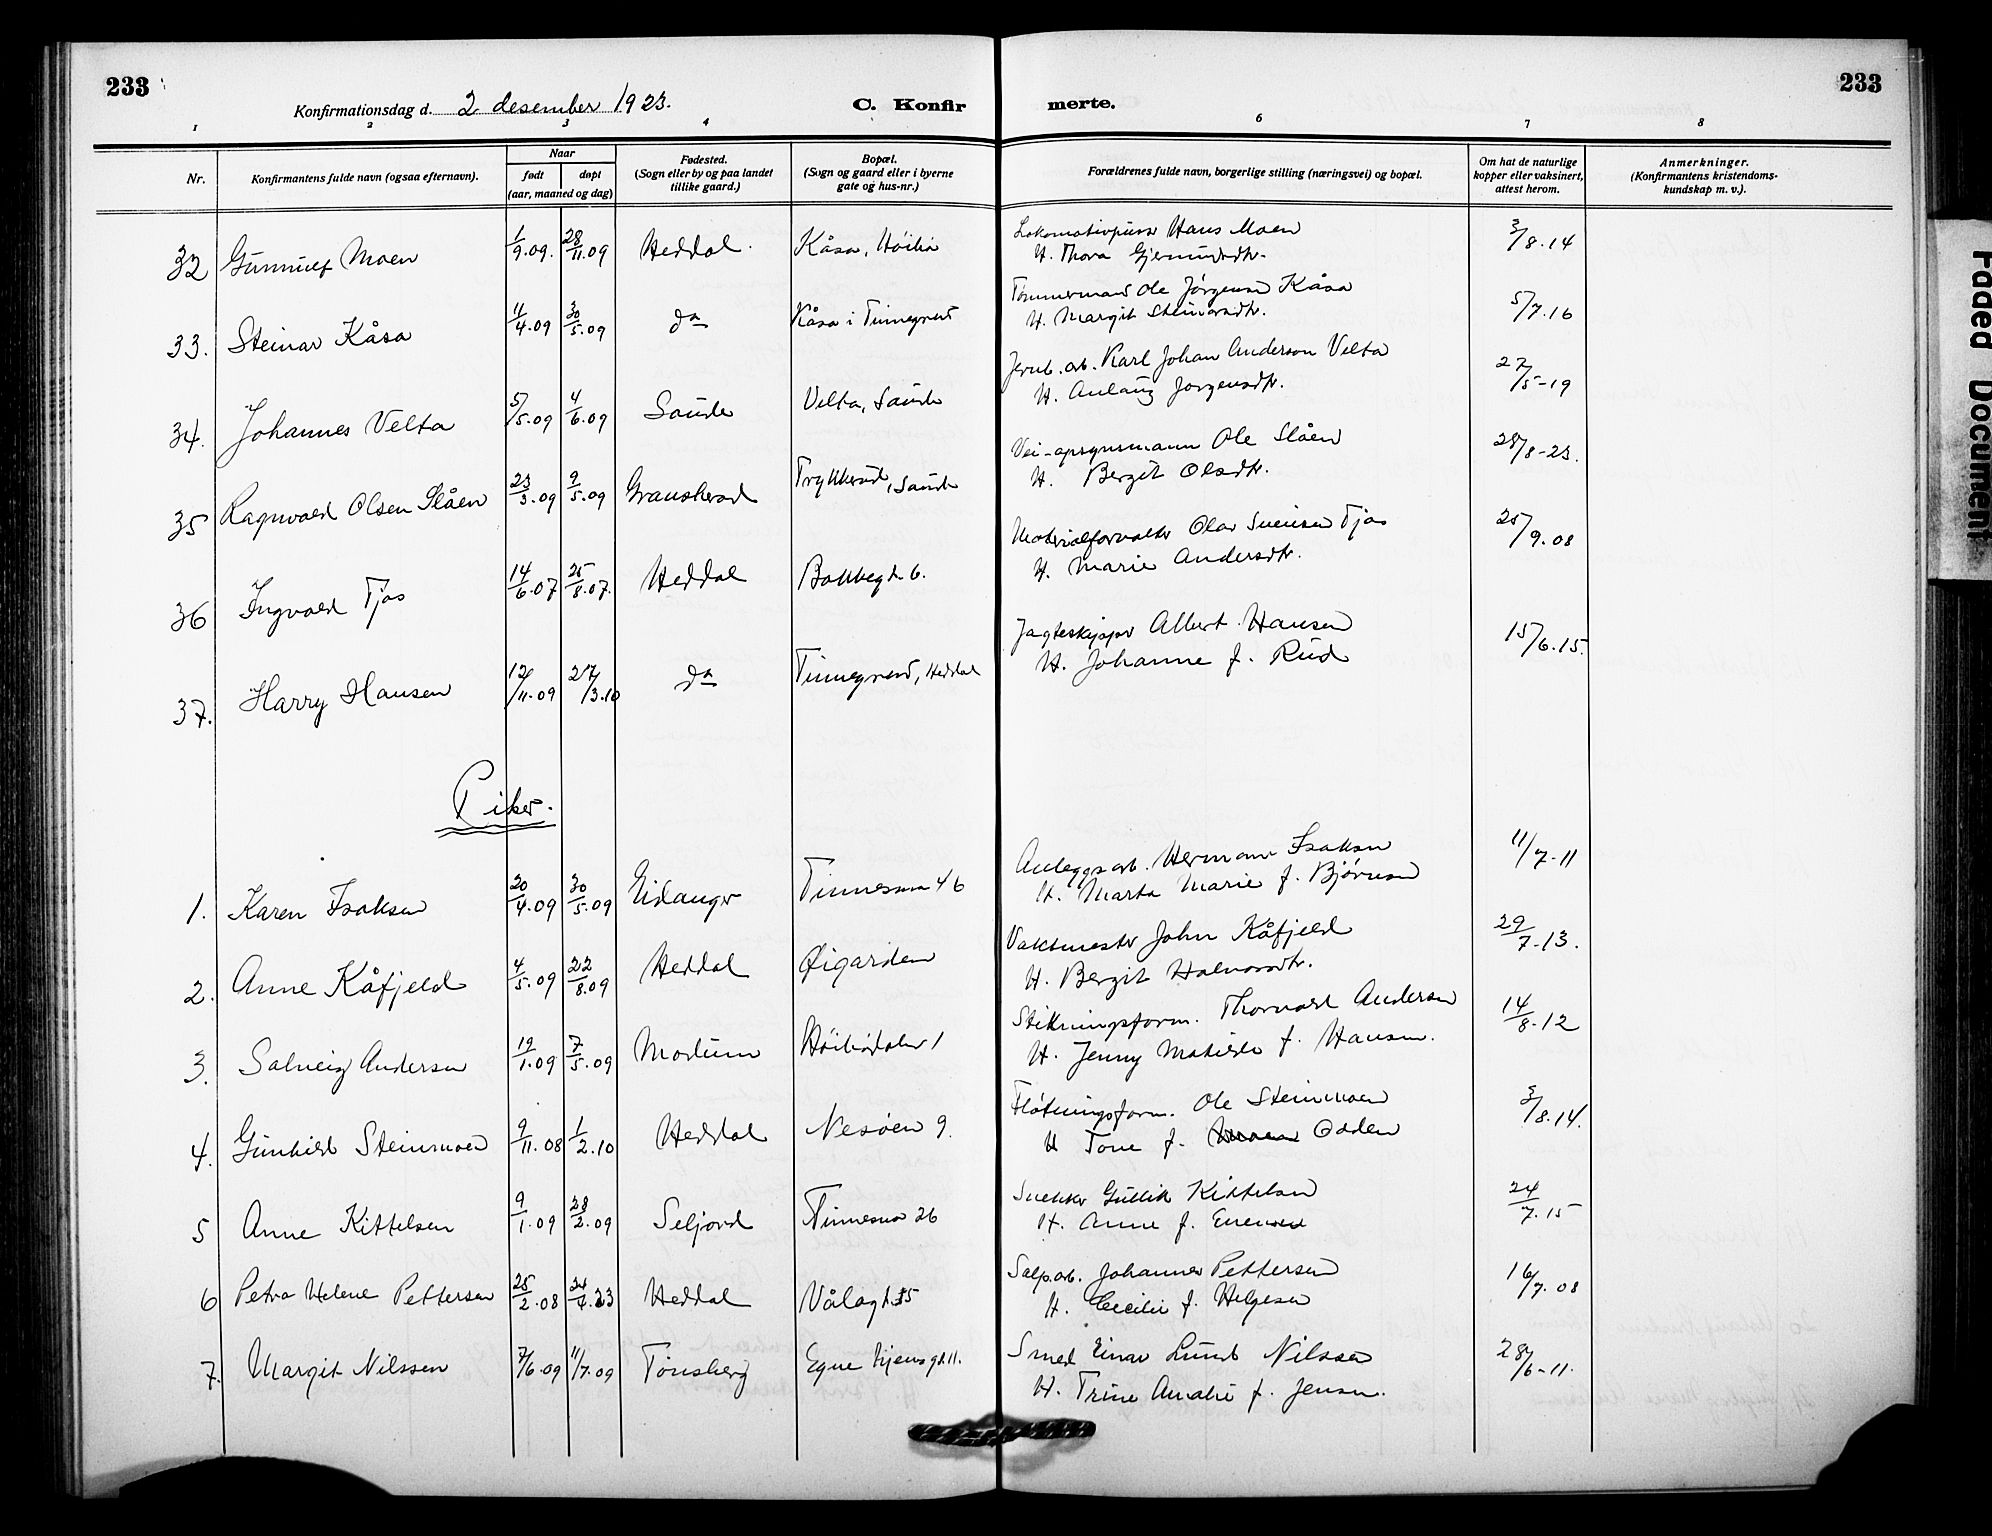 233
Konfirmationsdag d. 2 desember 1923.
C. Konfirmerte.
233
1 2 3 4 6 7 8
Nr.
Konfirmantens fulde navn (ogsaa efternavn).
Naar
født døpt
(aar, maaned og dag)
Fødested.
(Sogn eller by og paa landet
tillike gaard.)
Bopæl.
(Sogn og gaard eller i byerne
gate og hus-nr.)
Forældrenes fulde navn, borgerlige stilling (næringsvei) og bopæl.
Om hat de naturlige
kopper eller vaksinert,
attest herom.
Anmerkninger.
(Konfirmantens kristendoms-
kundskap m. v.).
32 Gunnulf Moen 1/9.09. 28/11.09 Heddal. Kåsa, Höilia Lokomotivpuss Hans Moen 3/8.14
H. Thora Gjermundsdtr.
33. Steinar Kåsa 11/4.09 30/5.09 do Kåsa i Tinnegrend Tömmermand Ole Jörgensen Kåsa 5/7.16
H. Margit Steinarsdtr.
34. Johannes Velta 5/5.09 4/6.09 Saude Velta, Saude Jernb. arb. Karl Johan Anderson Velta 27/5-19
H. Aulaug Jorgensdtr.
35 Ragnvald Olsen Slåen 23/3.09 9/5.09 Gransherad Trykkerud, Saude Vei-opsynsmann Ole Slåen 28/8-23.
H. Bergit Olsdtr.
36 Ingvald Tjos 14/6.07 25/8.07. Heddal Bakkegt. 6. Materialforvalter Olav Sveinsen Tjos 25/9.08
H. Marie Andersdtr.
37. Harry Hansen 12/11.09 27/3.10 do Tinnegrend, Heddal Jagteskipper Albert Hansen 15/6.15.
H. Johanne f. Rud
Piker.
1. Karen Isaksen 20/4.09 30/5.09 Eidanger Tinnesmo 46 Anleggsarb. Herman Isaksen 11/7-11
H. Marta Marie f. Björnsen
2. Anne Kåfjeld 4/5.09 22/8.09 Heddal Øigarden Vaktmester John Kåfjeld 29/7-13.
H. Bergit Halvorsdtr.
3. Solveig Andersen 19/1.09 7/5.09 Modum Höibödalen 1 Stikningsform. Thorvald Andersen 14/8-12
H. Jenny Matilde f. Hansen.
4. Gunhild Steinmoen 9/11.08 1/2.10 Heddal Nesöen 9. Flötningsform. Ole Steinmoen 3/8.14.
H Tone f. Odden
5 Anne Kittelsen 9/1.09 28/2.09 Seljord Tinnesmo 26 Snekker Gullik Kittelsen 24/7.15
H. Anne f.
6 Petra Helene Pettersen 25/2.08 24/4.23 Heddal Vålagt. 15 Salp.arb. Johannes Pettersen 16/7.08
H. Cecilie f. Helgesen
7. Margit Nilssen 7/6.09 11/7.09 Tönsberg Egne hjems gt. 11. Smed Einar Lund Nilssen 28/6-11.
H. Trine Amalie f. Jensen.
Faded Document